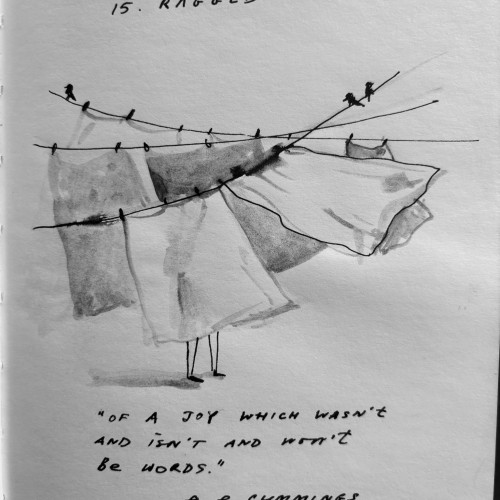 15. RAGGED
"OF A JOY WHICH WASN'T
AND ISN'T AND WON'T
BE WORDS."
e.e. CUMMINGS